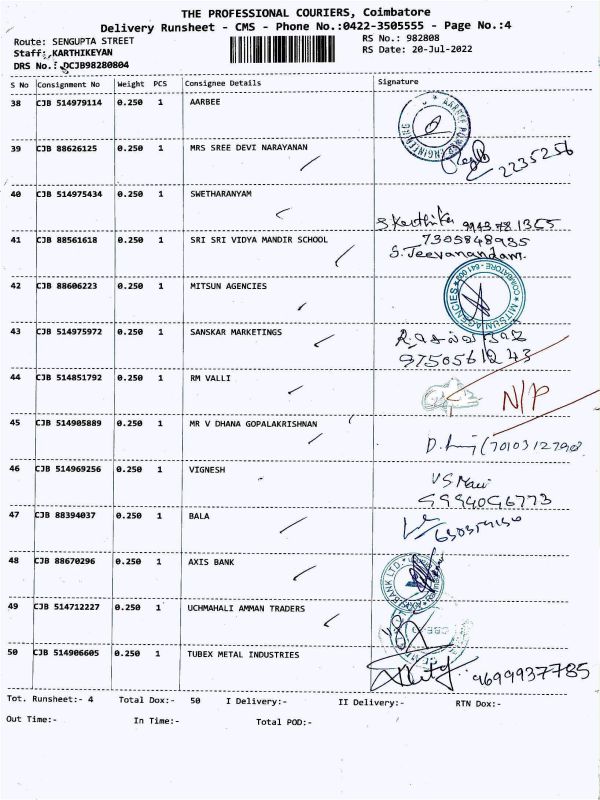 THE PROFESSIONAL COURIERS, Coimbatore
Delivery Runsheet - CMS - Phone No.:0422-3505555 - Page No.:4
Route: SENGUPTA STREET
RS No.: 982808
Staff: KARTHIKEYAN
RS Date: 20-Jul-2022
DRS No.: DCJB98280804
S No Consignment No Weight PCS Consignee Details Signature
38 CJB 514979114 0.250 1 AARBEE
39 CJB 88626125 0.250 1 MRS SREE DEVI NARAYANAN
2235256
40 CJB 514975434 0.250 1 SWETHARANYAM
S Karthika 9943781355
41 CJB 88561618 0.250 1 SRI SRI VIDYA MANDIR SCHOOL
7305848935
S. Jeevanandam.
42 CJB 88606223 0.250 1 MITSUN AGENCIES
MITSUN AGENCIES
43 CJB 514975972 0.250 1 SANSKAR MARKETINGS
9750561243
44 CJB 514851792 0.250 1 RM VALLI
N/P
45 CJB 514905889 0.250 1 MR V DHANA GOPALAKRISHNAN
46 CJB 514969256 0.250 1 VIGNESH
9994096773
47 CJB 88394037 0.250 1 BALA
48 CJB 88670296 0.250 1 AXIS BANK
49 CJB 514712227 0.250 1 UCHMAHALI AMMAN TRADERS
50 CJB 514906605 0.250 1 TUBEX METAL INDUSTRIES
9699937785
Tot. Runsheet:- 4 Total Dox:- 50 I Delivery:- II Delivery:- RTN Dox:-
Out Time:- In Time:- Total POD:-